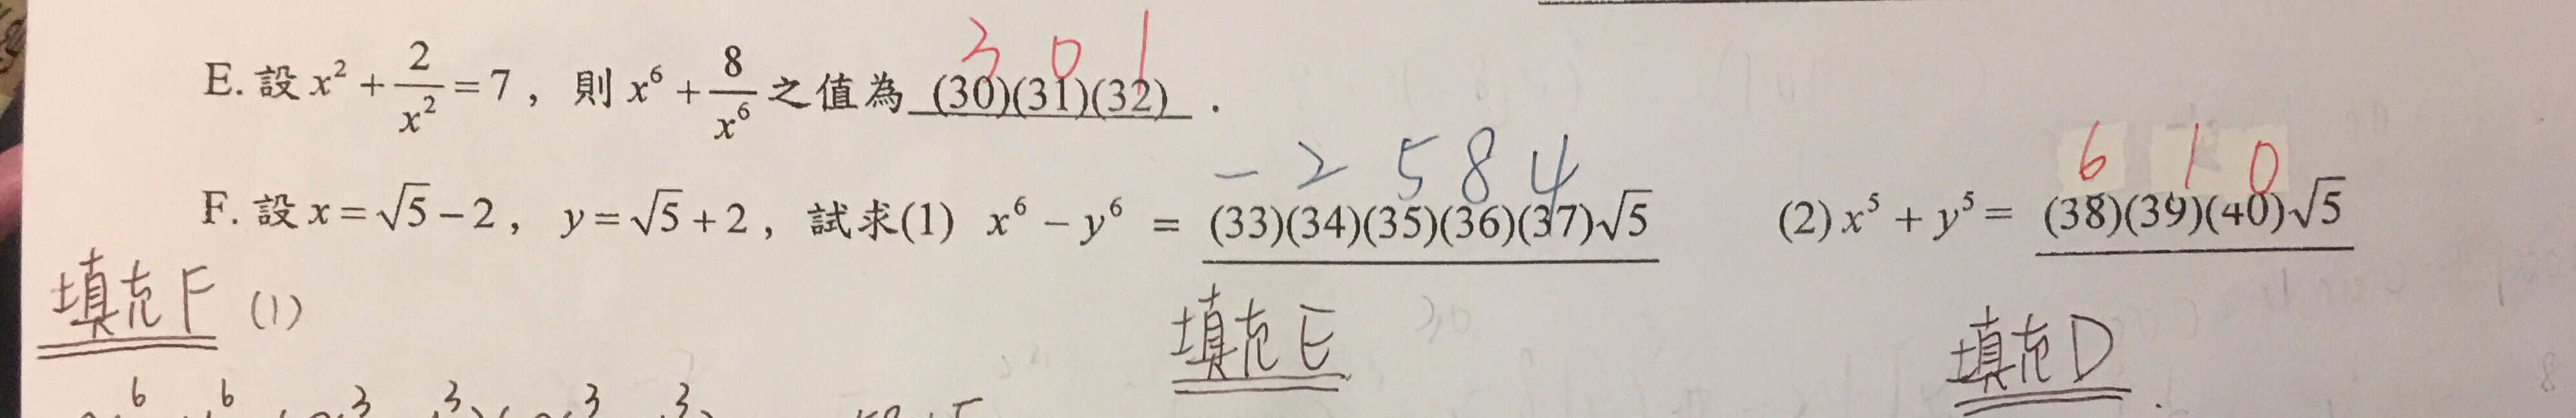 3 0 1
E. 設 x² + 2/x² = 7，則 x⁶ + 8/x⁶ 之值為 (30)(31)(32)．
− 2 5 8 4 6 1 0
F. 設 x = √5 − 2， y = √5 + 2，試求(1) x⁶ − y⁶ = (33)(34)(35)(36)(37)√5 (2) x⁵ + y⁵ = (38)(39)(40)√5
填充F (1) 填充E 填充D